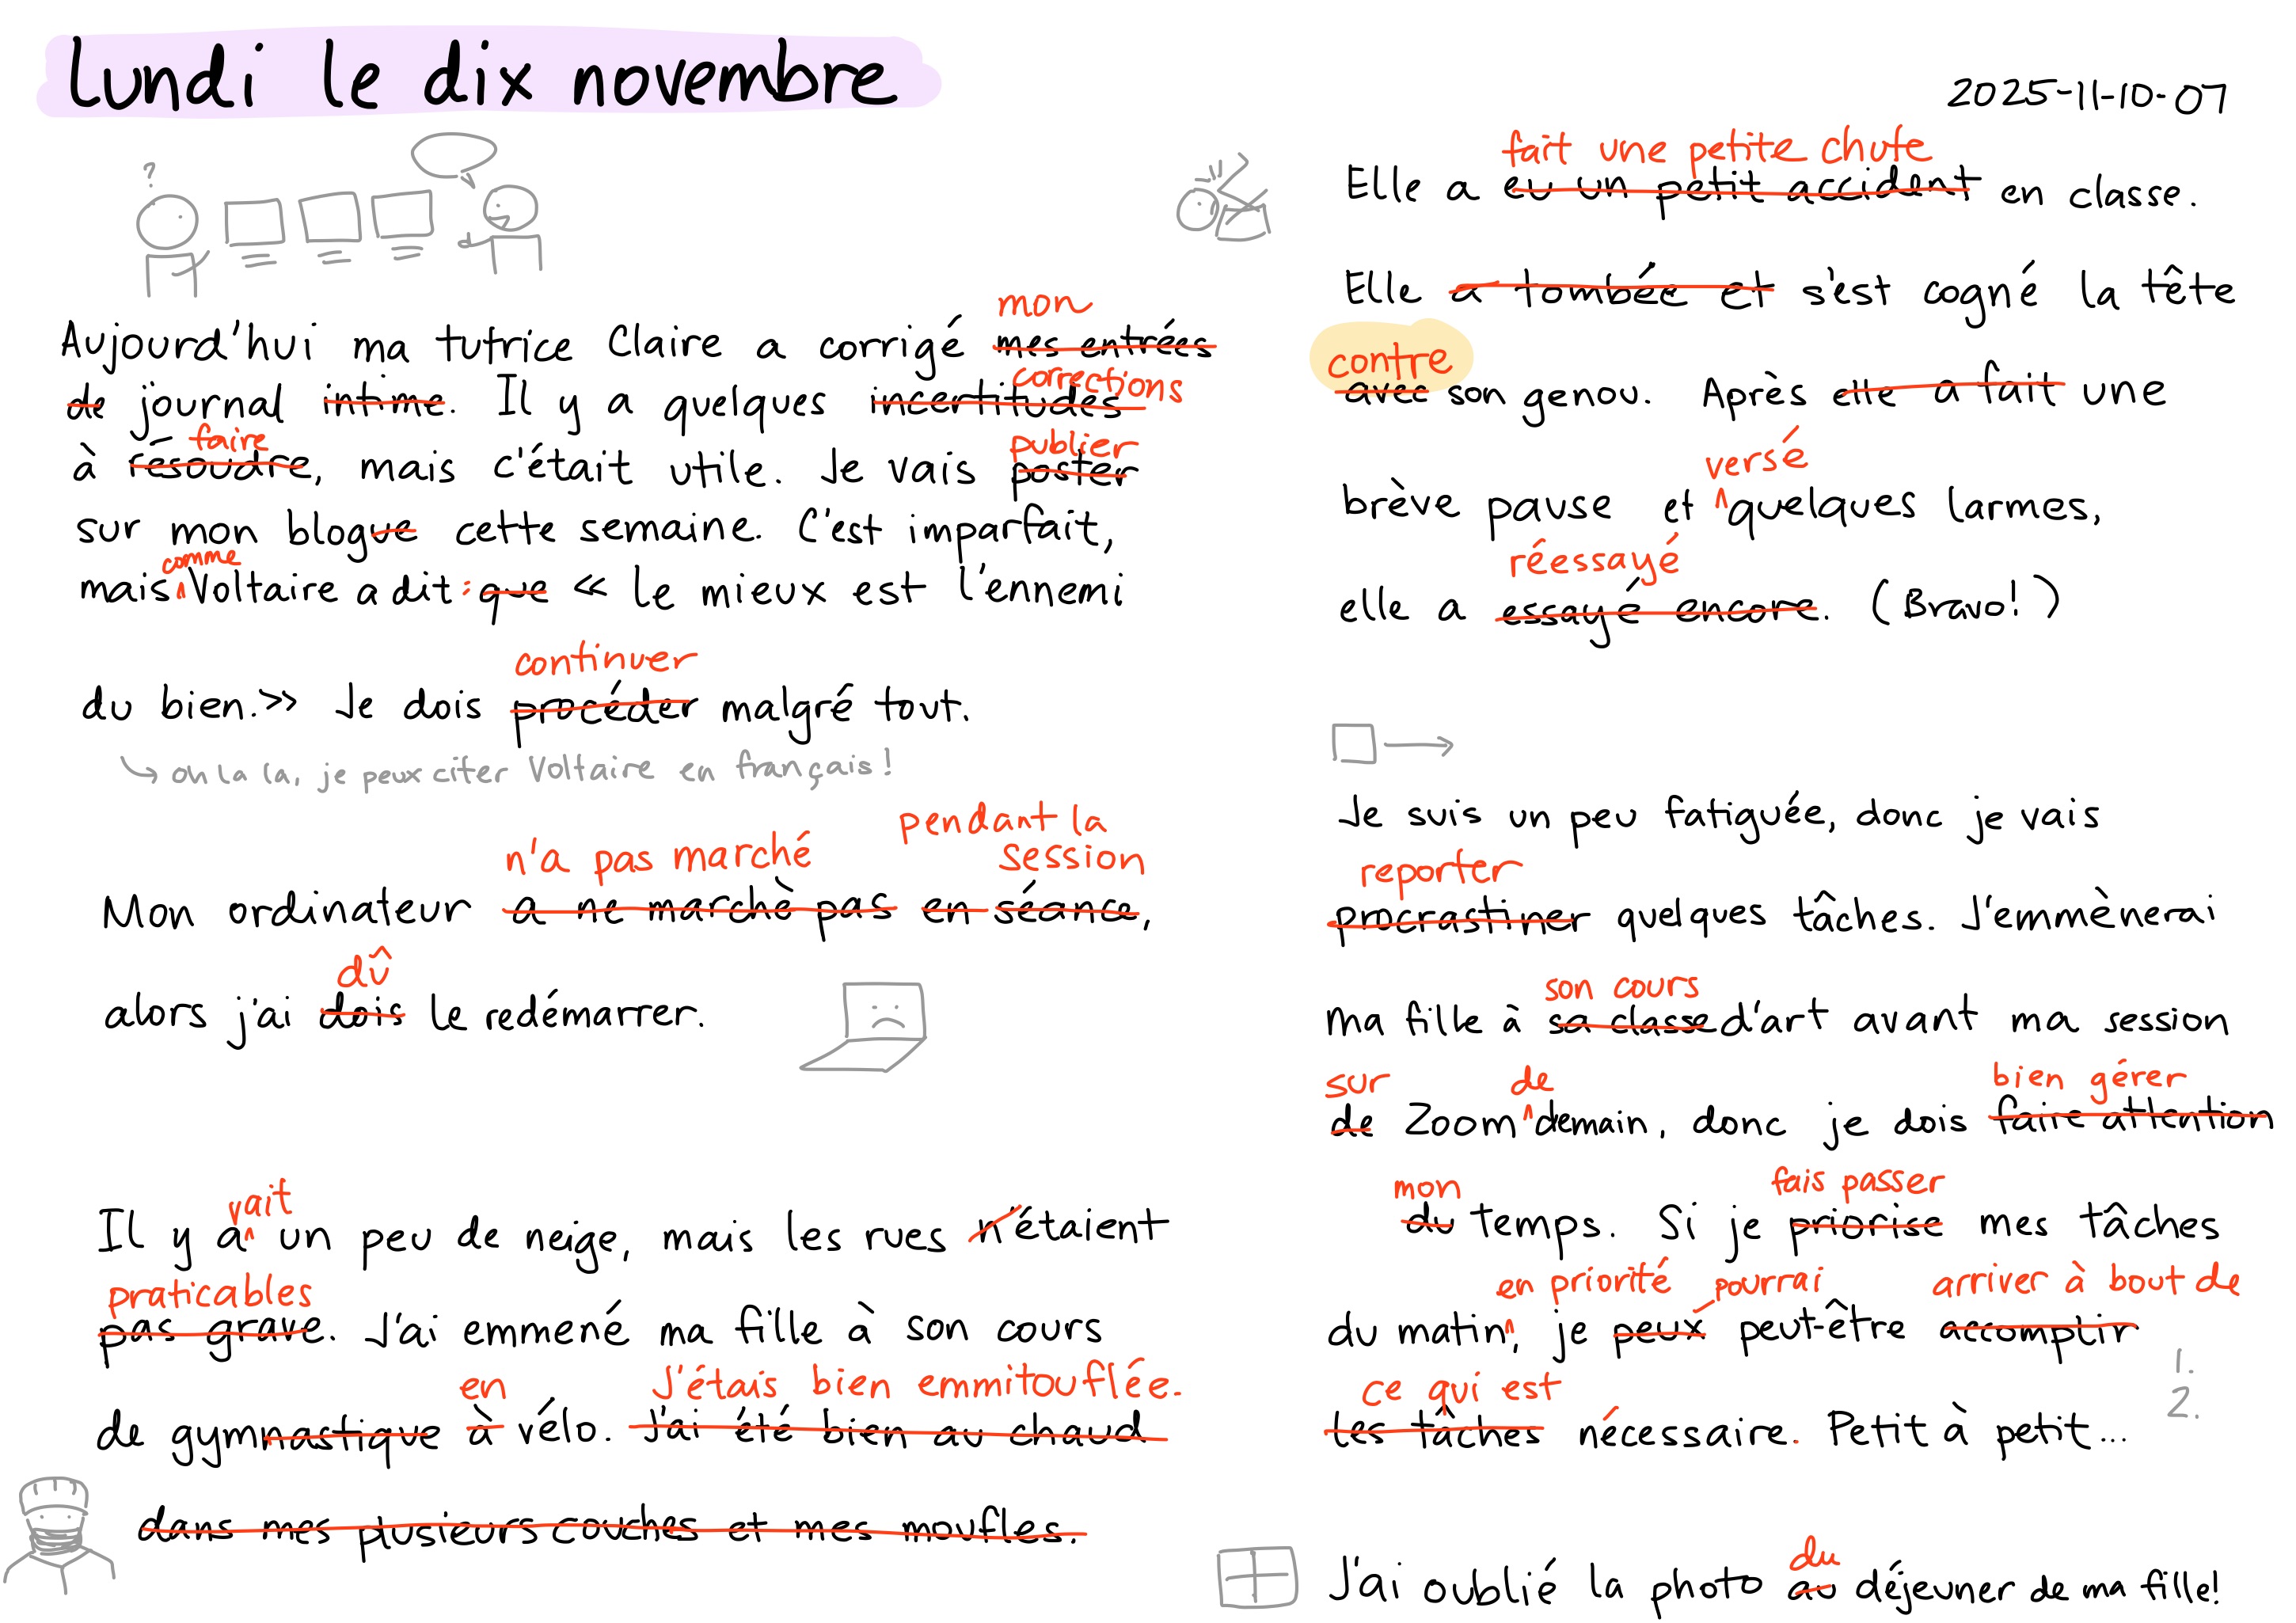 lundi le dix novembre
2025-11-10-07
?
mon
Aujourd'hui ma tutrice Claire a corrigé mes entrées
corrections
de journal intime. Il y a quelques incertitudes
faire publier
à résoudre, mais c'était utile. Je vais poster
sur mon blogue cette semaine. C'est imparfait,
comme
mais Voltaire a dit : que « Le mieux est l'ennemi
continuer
du bien.» Je dois procéder malgré tout.
oh la la, je peux citer Voltaire en français!
n'a pas marché pendant la session
Mon ordinateur a ne marchè pas en séance,
dû
alors j'ai dois le redémarrer.
vait
Il y a un peu de neige, mais les rues n'étaient
praticables
pas grave. J'ai emmené ma fille à son cours
en J'étais bien emmitouflée.
de gymnastique à vélo. J'ai été bien au chaud
dans mes plusieurs couches et mes moufles.
fait une petite chute
Elle a eu un petit accident en classe.
Elle a tombée et s'est cogné la tête
contre
avec son genou. Après elle a fait une
versé
brève pause et quelques larmes,
réessayé
elle a essayé encore. (Bravo!)
Je suis un peu fatiguée, donc je vais
reporter
procrastiner quelques tâches. J'emmènerai
son cours
ma fille à sa classe d'art avant ma session
sur de bien gérer
de Zoom demain, donc je dois faire attention
mon fais passer
du temps. Si je priorise mes tâches
en priorité pourrai arriver à bout de
du matin, je peux peut-être accomplir
1.
2.
ce qui est
les tâches nécessaire. Petit à petit...
du
J'ai oublié la photo au déjeuner de ma fille!